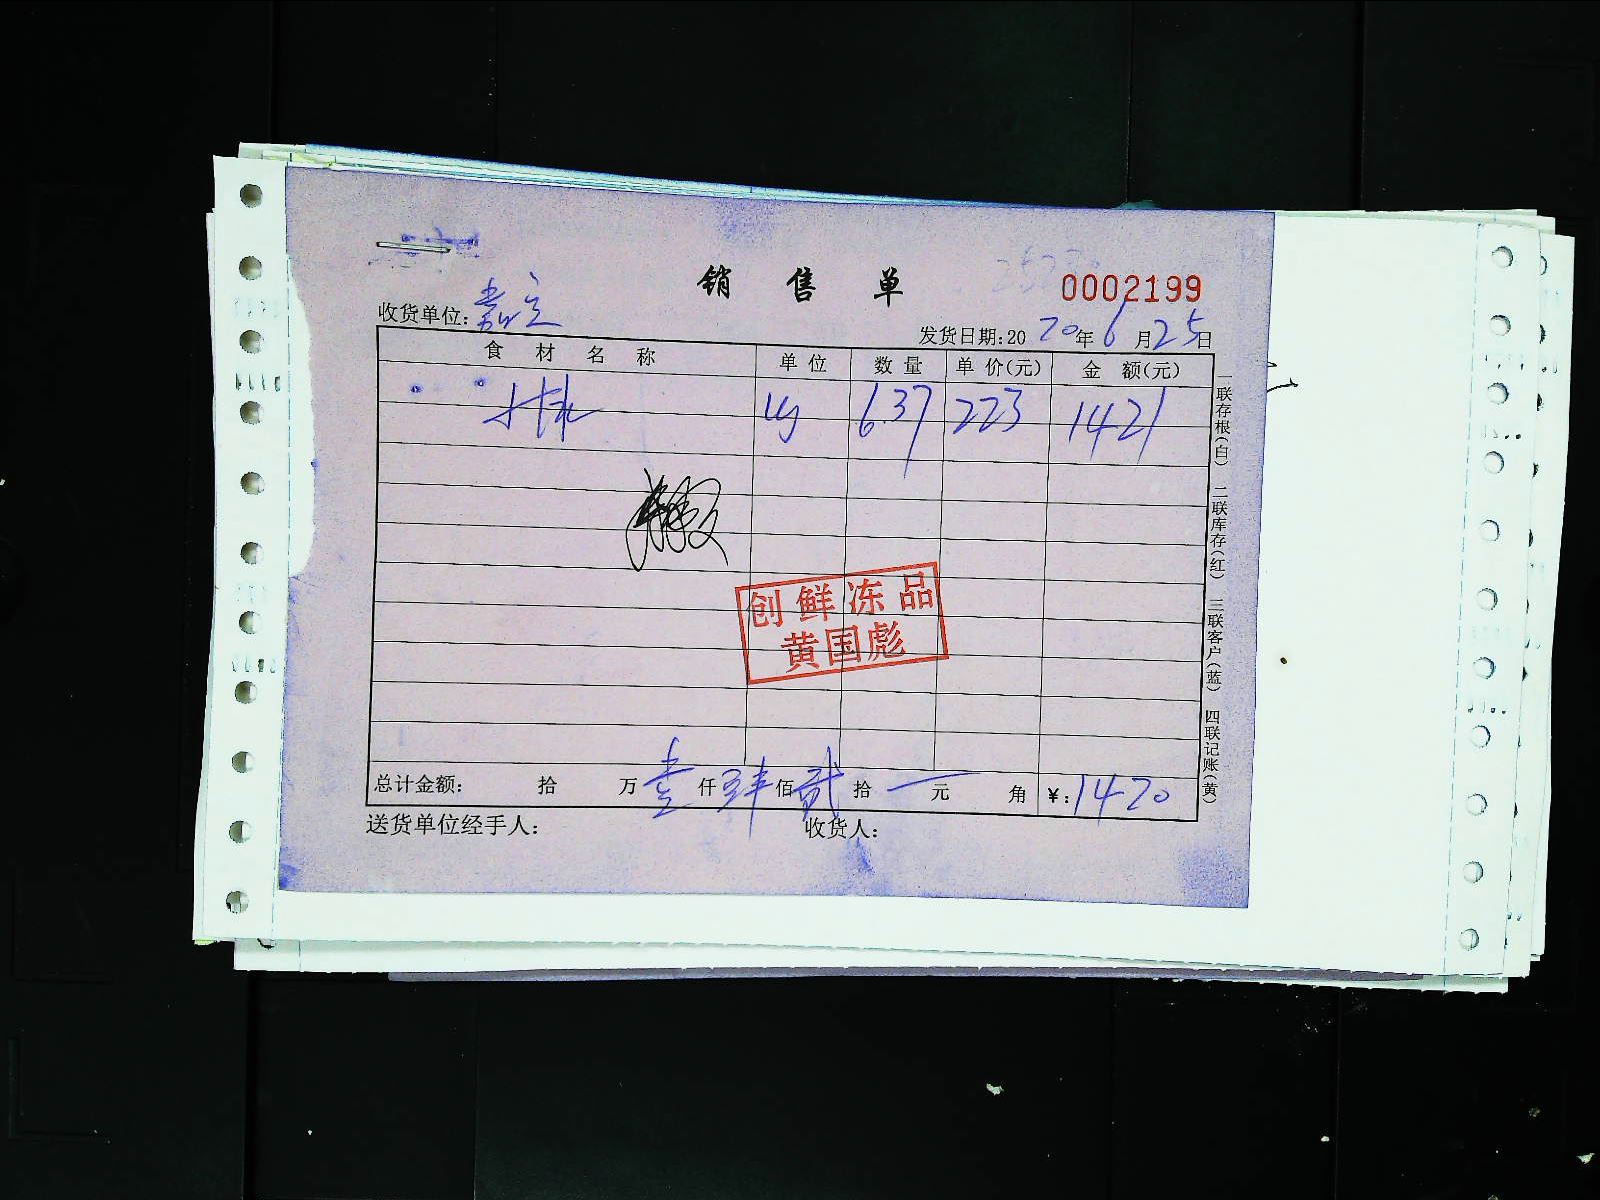 销售单
0002199
收货单位：嘉定
发货日期：2020年6月25日
食材名称 单位 数量 单价(元) 金额(元)
kg 6.37 223 1421
创鲜冻品
黄国彪
总计金额： 拾 万壹仟肆佰贰拾一元 角 ¥：1420
送货单位经手人： 收货人：
一联存根(白) 二联库存(红) 三联客户(蓝) 四联记账(黄)